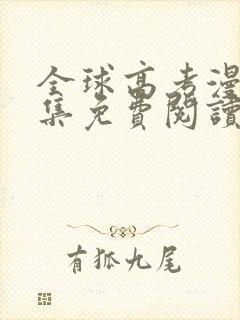 全球高考漫
集免費閱讀
有狐九尾